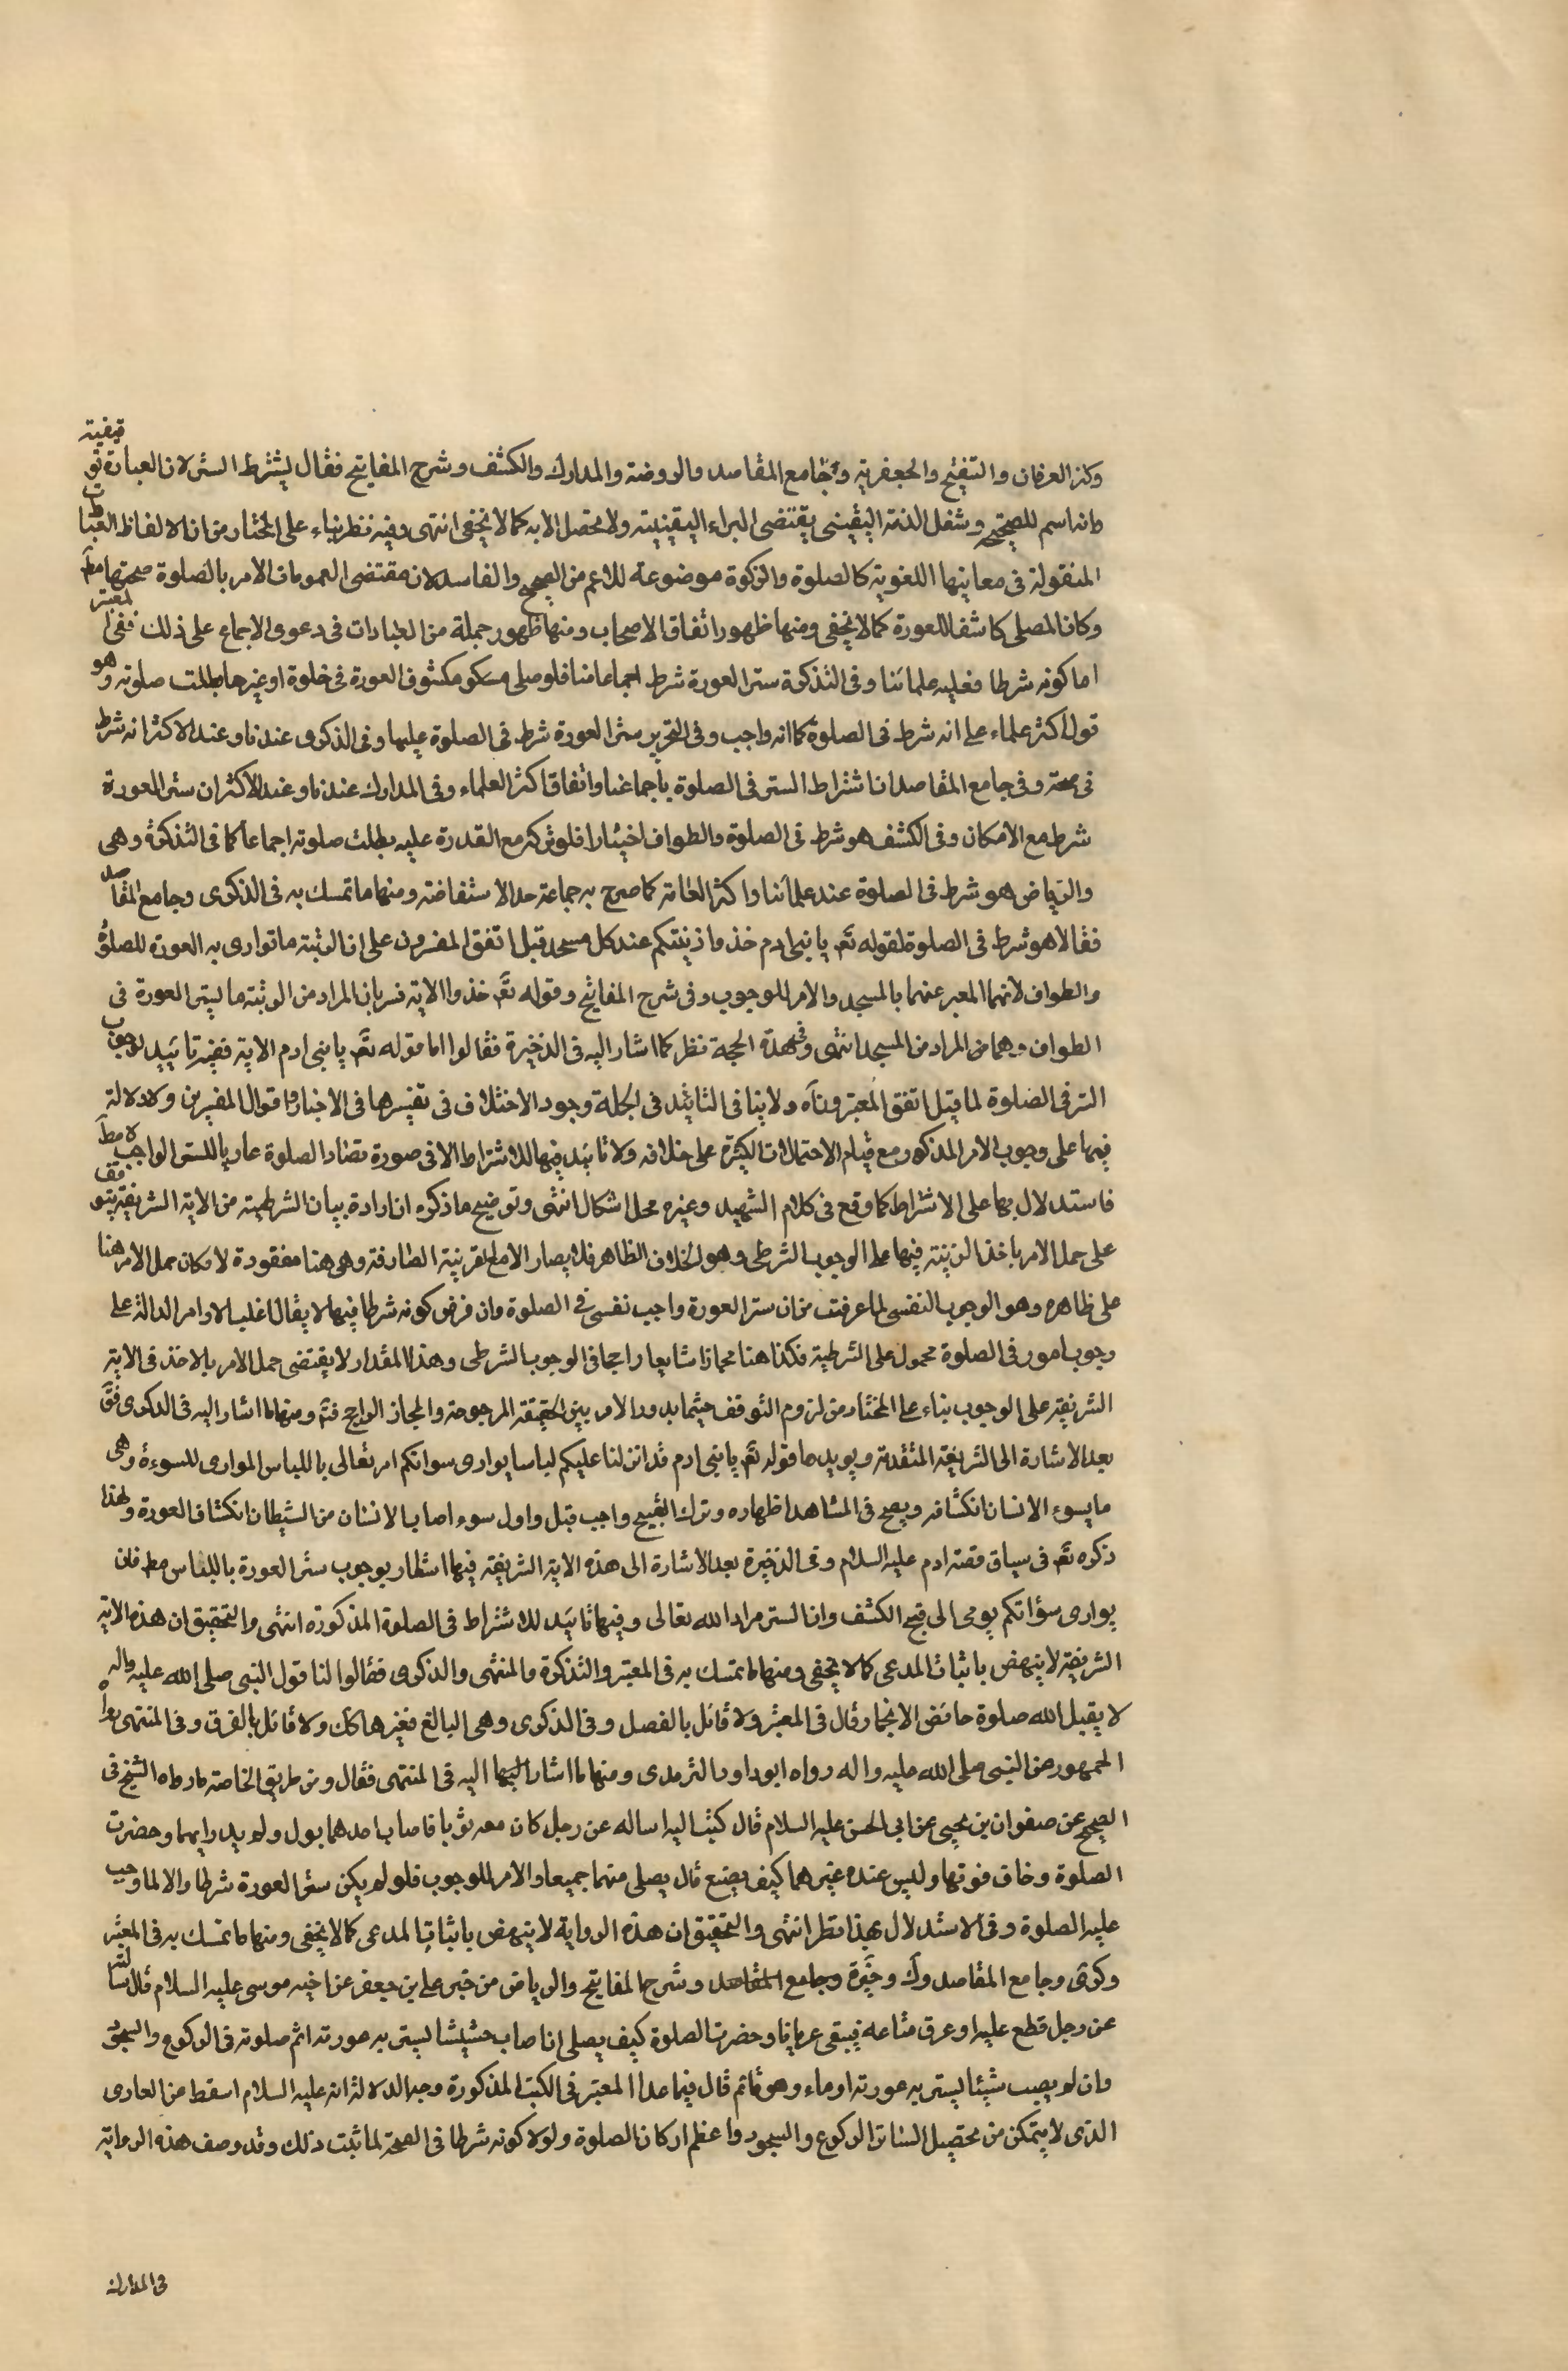 وكنز العرفان والتنقيح والجعفرية وجامع المقاصد والروضة والمدارك والكشف وشرح المفاتيح فقال يشترط الستر لان العبادة توقيفية
وانه اسم للصحيح وشغل الذمة اليقيني يقتضى البراءة اليقينية ولا يحصل الا به كما لا يخفى انتهى وفيه نظر بناء على المختار من ان الالفاظ العبادات
المنقولة فى معانيها اللغوية كالصلوة والزكوة موضوعة للاعم من الصحيح والفاسد لان مقتضى العمومات الامر بالصلوة صحتها مط
وكان المصلى كاشفا للعورة كما لا يخفى ومنها ظهور اتفاق الاصحاب ومنها ظهور جملة من العبارات فى دعوى الاجماع على ذلك ففى المعتبر
اما كونه شرطا فعليه علمائنا وفى التذكرة ستر العورة شرط اجماعا منا فلو صلى مكشوف العورة فى خلوة او غيرها بطلت صلوته وهو
قول اكثر علماء على انه شرط فى الصلوة كما انه واجب وفى التحرير ستر العورة شرط فى الصلوة عليها وفى الذكرى عندنا وعند الاكثر انه شرط
فى صحته وفى جامع المقاصد ان اشتراط الستر فى الصلوة باجماعنا واتفاق اكثر العلماء وفى المدارك عندنا وعند الاكثر ان ستر العورة
شرط مع الامكان وفى الكشف هو شرط فى الصلوة والطواف اختيارا فلو تركه مع القدرة عليه بطلت صلوته اجماعا كما فى التذكرة وهى
والرياض هو شرط فى الصلوة عند علمائنا واكثر العامة كما صرح به جماعة حد الاستفاضة ومنها ما تمسك به فى الذكرى وجامع المقاصد
فقالا هو شرط فى الصلوة لقوله تع يا بنى ادم خذوا زينتكم عند كل مسجد قيل اتفق المفسرون على ان الزينة ما توارى به العورة للصلوة
والطواف لانهما المعبر عنهما بالمسجد والامر للوجوب وفى شرح المفاتيح وقوله تع خذوا الاية فسر بان المراد من الزينة ما يستر العورة فى
الطواف وهما من المراد من المسجد انتهى وفى هذه الحجة نظر كما اشار اليه فى الذخيرة فقالوا اما قوله تع يا بنى ادم الاية ففيه تاييد لوجوب
الستر فى الصلوة لما قيل اتفق المعتبرون اه ولا ينافى التاييد فى الجملة وجود الاختلاف فى تفسيرها فى الاخبار واقوال المفسرين ولا دلالة
فيها على وجوب الامر المذكور مع قيام الاحتمالات الكثيرة على خلافه ولا تاييد فيها للاشتراط الا فى صورة تضاد الصلوة عاريا للستر الواجب لا مط
فاستدلال بها على الاشتراط كما وقع فى كلام الشهيد وغيره محل اشكال انتهى وتوضيح ما ذكره ان ارادة بيان الشرطية من الاية الشريفة يتوقف
على حمل الامر باخذ الزينة فيها على الوجوب الشرطى وهو خلاف الظاهر فلا يصار الا مع القرينة الصارفة وهى هنا مفقودة لامكان حمل الامر هنا
على ظاهره وهو الوجوب النفسى لما عرفت من ان ستر العورة واجب نفسى فى الصلوة وان فرض كونه شرطا فيها لا يقال اغلب الاوامر الدالة على
وجوب امور فى الصلوة محمول على الشرطية فكذا هنا مجازا شايعا راجحا فى الوجوب الشرطى وهذا المقدار لا يقتضى حمل الامر بالاخذ فى الاية
الشريفة على الوجوب بناء على المختار من لزوم التوقف حيثما يدور الامر بين الحقيقة المرجوحة والمجاز الراجح فتم ومنها ما اشار اليه فى الذكرى فق
بعد الاشارة الى الشريفة المتقدمة ويويدها قوله تع يا بنى ادم قد انزلنا عليكم لباسا يوارى سواتكم امر تعالى باللباس الموارى للسوءة وهى
ما يسوء الانسان انكشافه ويقبح فى المشاهد اظهاره وترك القبيح واجب قيل واول سوء اصاب الانسان من الشيطان انكشاف العورة ولهذا
ذكره تع فى سياق قصة ادم عليه السلام وفى الذخيرة بعد الاشارة الى هذه الاية الشريفة فيها اشعار بوجوب ستر العورة باللباس مط فان
يوارى سؤاتكم يومى الى قبح الكشف وان الستر مراد الله تعالى وفيها تاييد للاشتراط فى الصلوة المذكورة انتهى والتحقيق ان هذه الاية
الشريفة لا ينهض باثبات المدعى كما لا يخفى ومنها ما تمسك به فى المعتبر والتذكرة والمنتهى والذكرى فقالوا لنا قول النبى صلى الله عليه واله
لا يقبل الله صلوة حائض الا بخمار وقال فى المعتبر ولا قائل بالفصل وفى الذكرى وهى البالغ فغيرها كك ولا قائل بالفرق وفى المنتهى رواه
الجمهور عن النبى صلى الله عليه واله رواه ابوداود الترمدى ومنها ما اشار اليه فى المنتهى فقال ومن طريق الخاصة ما رواه الشيخ فى
الصحيح عن صفوان بن يحيى عن ابى الحسن عليه السلام قال كتبت اليه اساله عن رجل كان معه ثوبا فاصاب احدهما بول ولم يدر ايهما وحضرت
الصلوة وخاف فوتها وليس عنده غيرهما كيف يصنع قال يصلى منهما جميعا والامر للوجوب فلو لم يكن ستر العورة شرطا والا لما وجب
عليه الصلوة وفى الاستدلال بهذا نظر انتهى والتحقيق ان هذه الرواية لا ينهض باثبات المدعى كما لا يخفى ومنها ما تمسك به فى المعتبر
وكرى وجامع المقاصد وك وخيرة وجامع المقاصد وشرح المفاتيح والرياض من خبر على بن جعفر عن اخيه موسى عليه السلام قال سالته
عن رجل قطع عليه او غرق متاعه فيبقى عريانا وحضرت الصلوة كيف يصلى ان اصاب حشيشا يستر به عورته اتم صلوته فى الركوع والسجود
وان لم يصب شيئا يستر به عورته اوماء وهو قائم قال فيما عدا المعتبر فى الكتب المذكورة وجه الدلالة انه عليه السلام اسقط من العارى
الذى لا يتمكن من تحصيل الساتر الركوع والسجود واعظم اركان الصلوة ولولا كونه شرطا فى الصحة لما ثبت ذلك وقد وصف هذه الرواية
فى المدارك